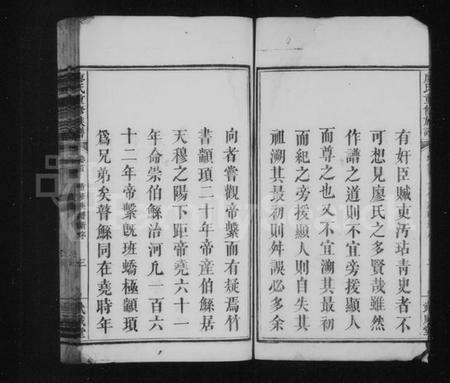 有奸臣贓吏汚玷青史者不
可想見廖氏之多賢哉雖然
作譜之道則不宜旁援顯人
而尊之也又不宜溯其最初
而紀之旁援顯人則自失其
祖溯其最初則舛誤必多余
向者嘗觀帝繫而有疑焉竹
書顓頊二十年帝産伯鯀居
天穆之陽下距帝堯六十一
年命崇伯鯀治河九一百六
十二年帝繫旣班蟜極顓頊
爲兄弟矣普鯀同在堯時年